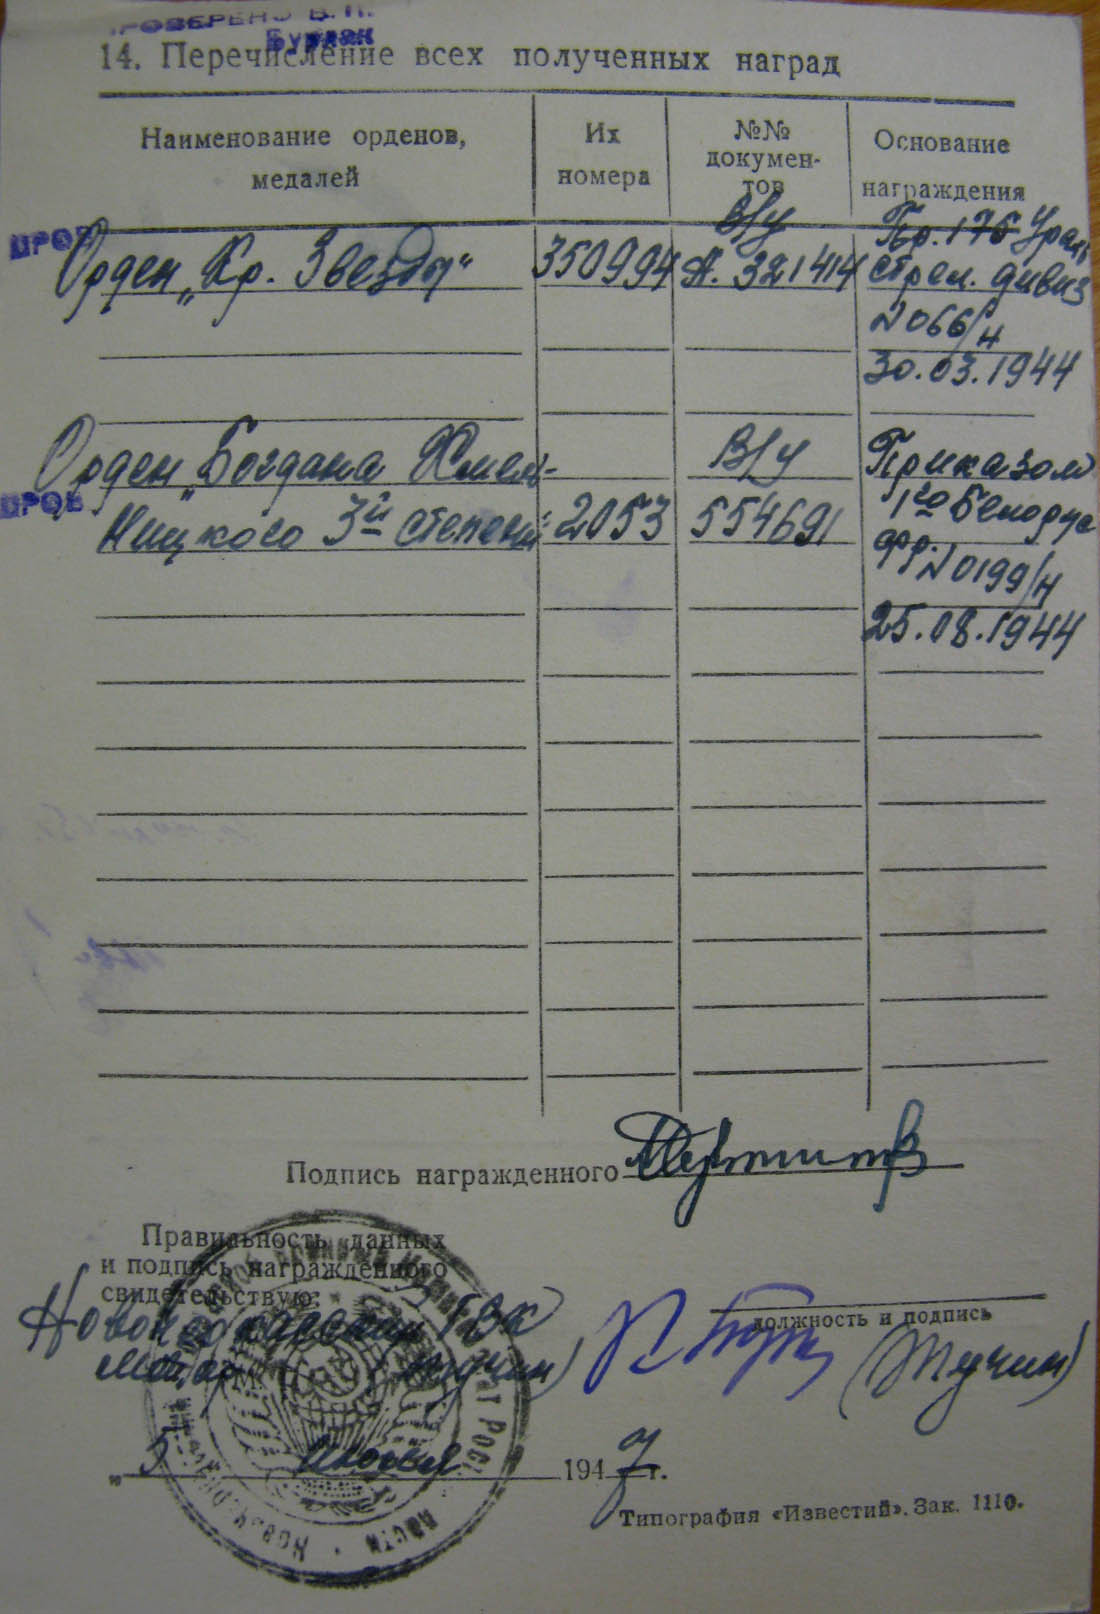 ПРОВЕРЕНО В. П.
Бурлак
14. Перечисление всех полученных наград
Наименование орденов, медалей
Их номера
№№ документов
Основание награждения
ПРОВ
Орден „Кр. Звезды“
350994
В/у
А. 321414
Пр. 176 Ураль
стрел. дивиз
N 066/н
30.03.1944
ПРОВ
Орден „Богдана Хмель-
ницкого 3й степени
2053
В/у
554691
Приказом
1го Белорус
фр. N 0199/н
25.08.1944
Подпись награжденного
Правильность данных
и подпись награжденного
свидетельствую:
должность и подпись
ГВК
майор
„ 5 1947 г.
Типография «Известий». Зак. 1110.